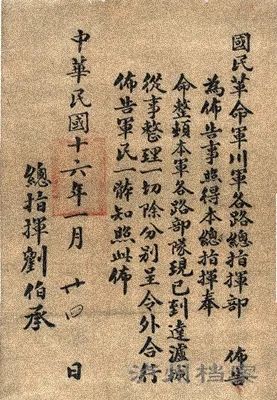 國民革命軍川軍各路總指揮部 佈告
為佈告事照得本總指揮奉
命整頓本軍各路部隊現已到達瀘城
從事整理一切除分別呈令外合行
佈告軍民一體知照此佈
中華民國十六年一月廿四日
總指揮劉伯承
瀘州档案